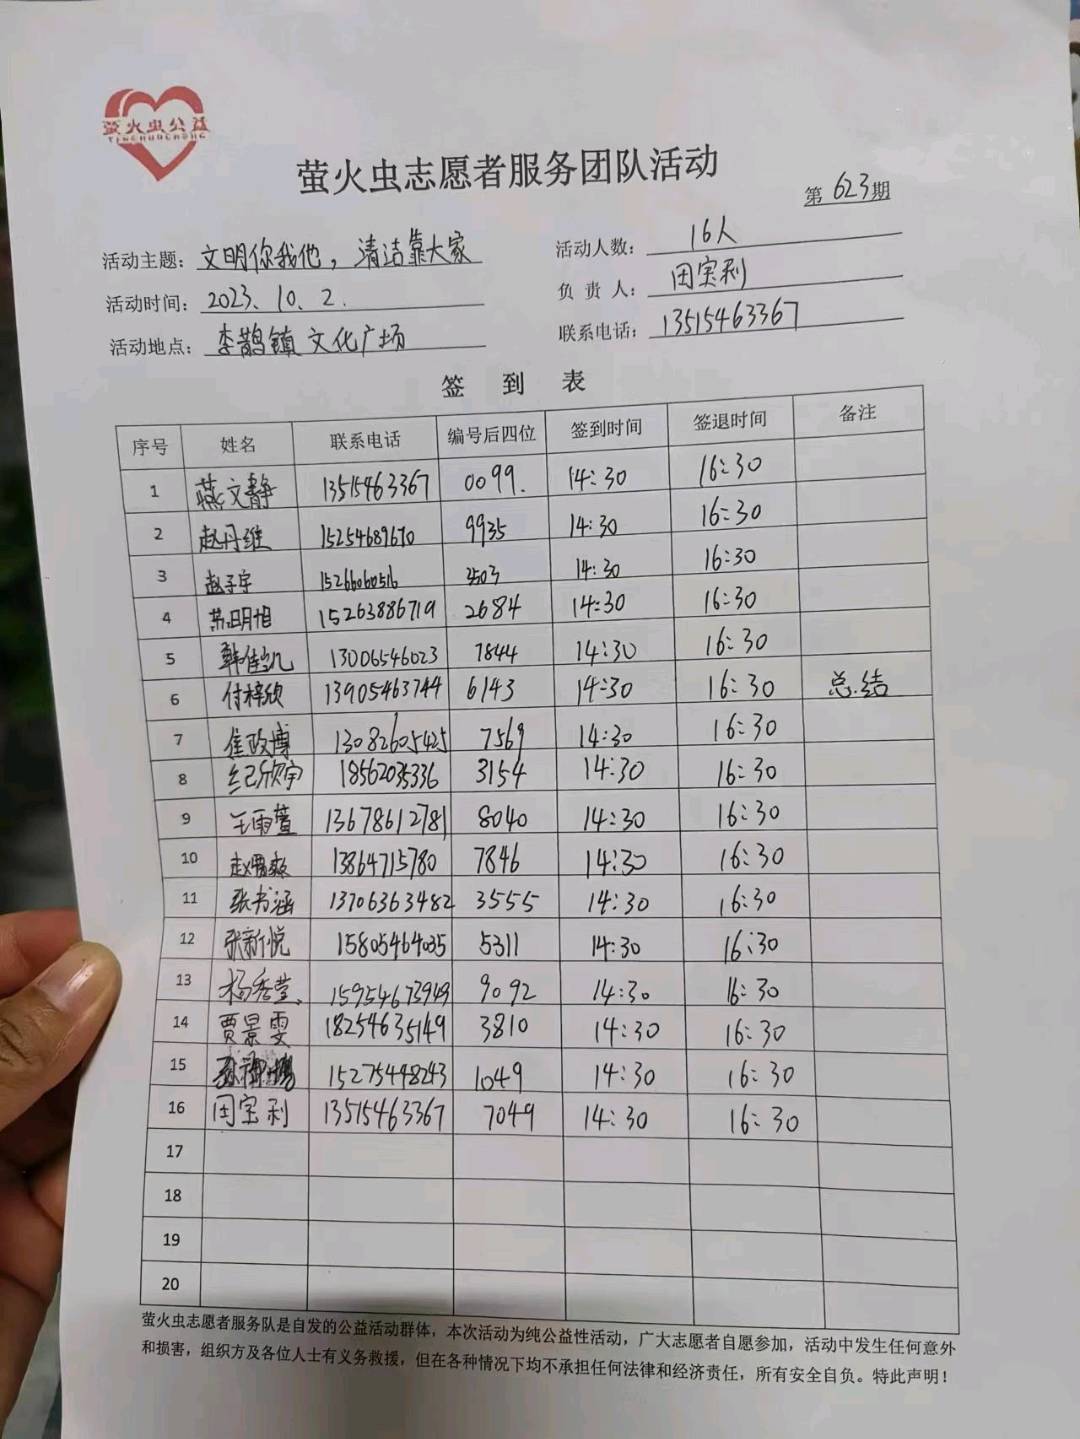 萤火虫公益
YINGHUOCHONG
萤火虫志愿者服务团队活动
第 623 期
活动主题：文明你我他，清洁靠大家
活动人数：16人
活动时间：2023.10.2.
负责人：田宝利
活动地点：李鹊镇文化广场
联系电话：13515463367
签到表
序号 姓名 联系电话 编号后四位 签到时间 签退时间 备注
1 燕文静 13515463367 0099. 14:30 16:30
2 赵丹维 15254689670 9935 14:30 16:30
3 赵子宇 15266060516 3503 14:30 16:30
4 明旭 15263886719 2684 14:30 16:30
5 韩佳凯 13006546023 7844 14:30 16:30
6 付梓欣 13905463744 6143 14:30 16:30 总结
7 崔政博 13082605425 7569 14:30 16:30
8 纪欣宇 18562035336 3154 14:30 16:30
9 王雨萱 13678612781 8040 14:30 16:30
10 赵 13864715780 7846 14:30 16:30
11 张书涵 13706363482 3555 14:30 16:30
12 张新悦 15805464035 5311 14:30 16:30
13 杨秀莹 15954673949 9092 14:30 16:30
14 贾景雯 18254635149 3810 14:30 16:30
15 15275448243 1049 14:30 16:30
16 田宝利 13515463367 7049 14:30 16:30
17
18
19
20
萤火虫志愿者服务队是自发的公益活动群体，本次活动为纯公益性活动，广大志愿者自愿参加，活动中发生任何意外
和损害，组织方及各位人士有义务救援，但在各种情况下均不承担任何法律和经济责任，所有安全自负。特此声明！